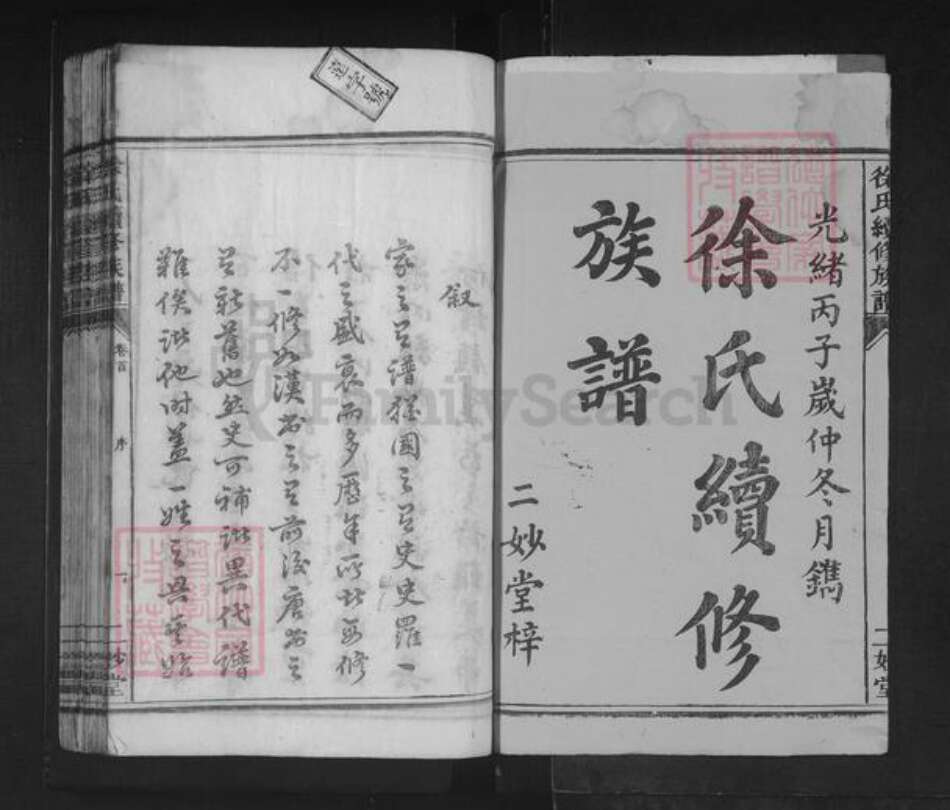 光緒丙子歲仲冬月鐫
徐氏續修
族譜
二妙堂梓
徐氏續修族譜
二妙堂
字號
叙
家之有譜猶國之有史史羅一
代之盛衰而多歷年所此必修
不一修如漢書之有前後唐書之
有新舊也然史可補諸異代譜
難俟諸他时蓋一姓之
卷首
序
FamilySearch